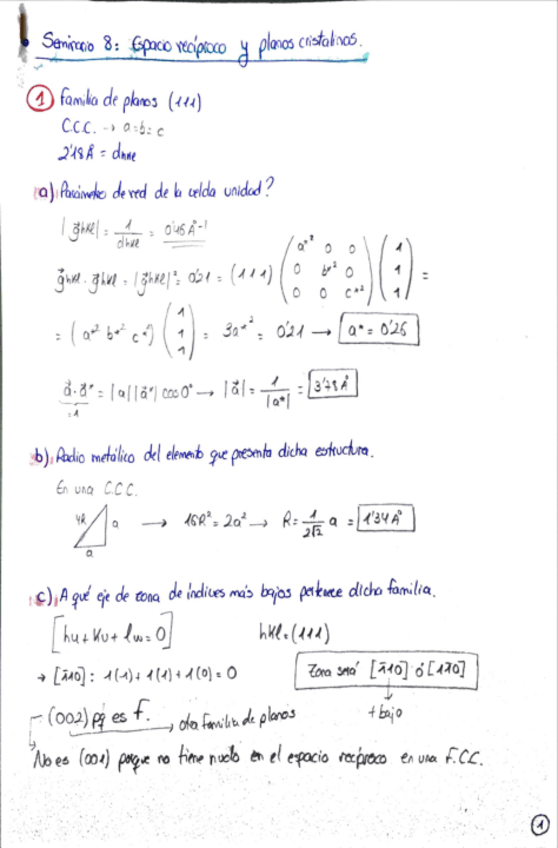 Seminario 8: Espacio recíproco y planos cristalinos.
1 Familia de planos (111)
C.C.C. → a=b=c
2'18 Å = dhkl
a) Parámetro de red de la celda unidad?
|g⃗hkl| = 1/dhkl = 0'46 Å⁻¹
g⃗hkl · g⃗hkl = |g⃗hkl|² = 0'21 = (111) (a*² 0 0 / 0 b*² 0 / 0 0 c*²) (1 1 1) =
= (a*² b*² c*²) (1 1 1) = 3a*² = 0'21 → a* = 0'26
a⃗·a⃗* = |a||a⃗*| cos 0° → |a⃗| = 1/|a*| = 3'78 Å
=1
b) Radio metálico del elemento que presenta dicha estructura.
En una C.C.C.
4R a → 16R² = 2a² → R = 1/2√2 a = 1'34 Å
a
c) A qué eje de zona de índices más bajos pertenece dicha familia.
[hu + kv + lw = 0] hkl = (111)
→ [1̄10]: 1(1) + 1(1) + 1(0) = 0 Zona será [1̄10] ó [11̄0]
+ bajo
(002) pq es F. → otra familia de planos
No es (001) porque no tiene nudo en el espacio recíproco en una F.C.C.
1